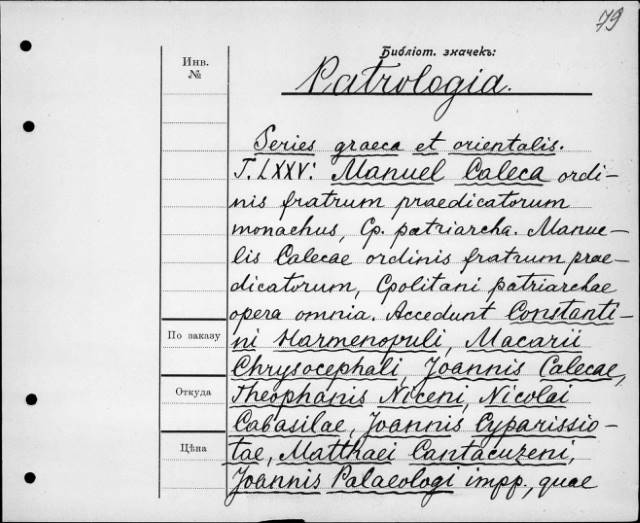 79
Библіот. значекъ:
Инв.
№
Patrologia.
Series graeca et orientalis.
T. LXXV: Manuel Caleca ordi-
nis fratrum praedicatorum
monachus, Cp. patriarcha. Manue-
lis Calecae ordinis fratrum prae-
dicatorum, Cpolitani patriarchae
opera omnia. Accedunt Constanti-
По заказу
ni Harmenopuli, Macarii
Chrysocephali, Joannis Calecae,
Откуда
Theophanis Niceni, Nicolai
Cabasilae, Joannis Cyparissio-
Цѣна
tae, Matthaei Cantacuzeni,
Joannis Palaeologi impp., quae